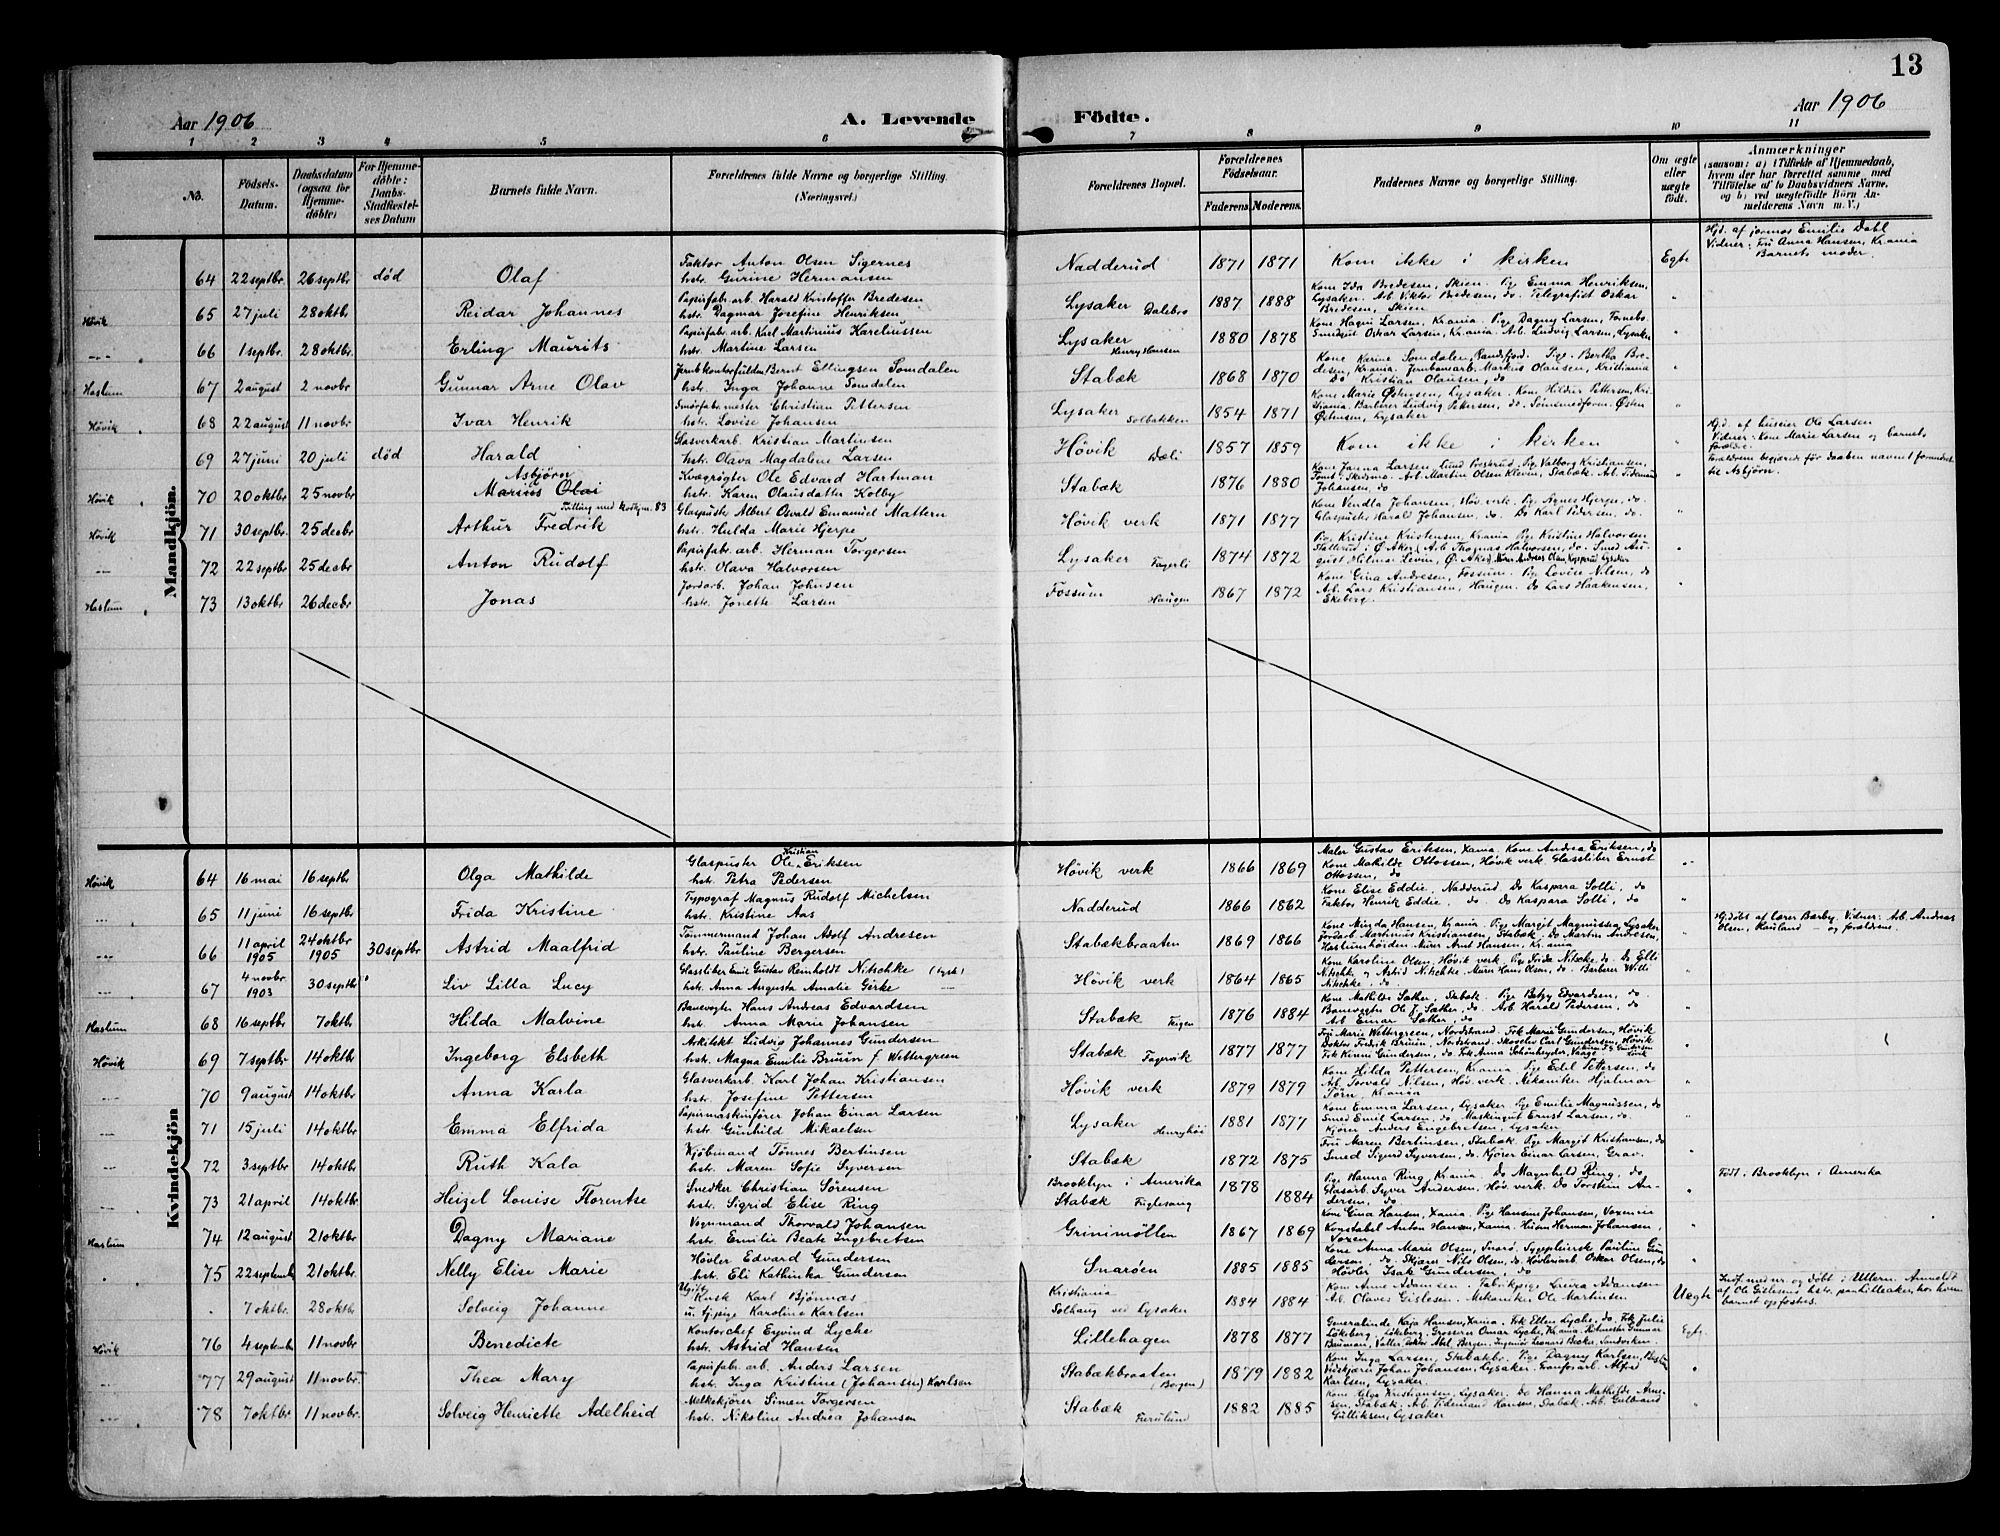 13
Aar 1906
A. Levende
Födte.
Aar 1906
1 2 3 4 5 6 7 8 9 10 11
No.
Födsels-Datum.
Daabsdatum (ogsaa for Hjemmedöbte)
For Hjemmedöbte: Daabs-Stadfestelses Datum
Barnets fulde Navn.
Forældrenes fulde Navne og borgerlige Stilling. (Næringsvei.)
Forældrenes Bopæl.
Forældrenes Födselsaar. Faderens. Moderens.
Faddernes Navne og borgerlige Stilling.
Om ægte eller uægte födt.
Anmærkninger (saasom: a) i Tilfælde af Hjemmedaab, hvem der har forrettet samme, med Tilföielse af to Daabsvidners Navne, og b) ved uægtefödte Börn Anmelderens Navn m. V.)
Mandkjön.
64 22 septbr 26 septbr död Olaf Faktor Anton Olsen Sigernes hstr. Gurine Hermansen Nadderud 1871 1871 Kom ikke i kirken Egte Hjd. af jormor Emilie Dahl Vidner: Fru Anna Hansen, Krania Barnets moder.
Hövik 65 27 juli 28 oktbr Reidar Johannes Papirfab. arb. Harald Kristoffer Bredesen hstr. Dagmar Josefine Henriksen Lysaker Dalebro 1887 1888 Kone Ida Bredesen, Skien. Pige Emma Henriksen, Lysaker. Arb. Viktor Bredesen, do. Telegrafist Oskar Bredesen, Skien
66 1 septbr. 28 oktbr. Erling Maurits Papirfabr. arb. Karl Martinius Kareliussen hstr. Martine Larsen Lysaker Henry Hansen 1880 1878 Kone Hagni Larsen, Krania. Pige Dagny Larsen, Fornebo. Oskar Larsen, Krania. Arb. Ludvig Larsen, Lysaker
Haslum 67 2 august 2 novbr Gunnar Arne Olav Jernb.kontorfuldm. Bernt Ellingsen Somdalen hstr. Inga Johanne Somdalen Stabæk 1868 1870 Kone Karine Somdalen, Randsfjord. Pige Bertha Bredesen, Krania. Jernbanearb. Markus Olausen, Kristiania Do Kristian Olausen, do
Hövik 68 22 august 11 novbr Ivar Henrik Smörfabr. mester Christian Pettersen hstr. Lovise Johansen Lysaker Solbakken 1854 1871 Kone Marie Östnesen, Lysaker. Kone Hildur Pettersen, Kristiania. Barberer Ludvig Pettersen, do. Östen Östnesen, Lysaker
69 27 juni 20 juli död Harald Glasverkarb. Kristian Martinsen hstr. Olava Magdalene Larsen Hövik Dæli 1857 1859 Kom ikke i kirken Hjd. af huseier Ole Larsen Vidner: Kone Marie Larsen og barnets forældre.
Hövik 70 20 oktbr 25 novbr Asbjörn Marius Olai Kvægrögter Ole Edvard Hartman hstr. Karen Olausdatter Kolby Stabæk 1876 1880 Kone Janna Larsen, Lund. Pige Valborg Kristiansen, Arb. Martin Olsen Kleven, Stabæk. Arb. Tidemand Johansen, do Forældrene begjærede för daaben navnet forandret til Asbjörn.
Hövik 71 30 septbr. 25 decbr Arthur Fredrik Glaspuster Albert Osvald Emanuel Mattern hstr. Hulda Marie Hjerpe Hövik verk 1871 1877 Kone Vendla Johansen, Höv. verk. Pige Agnes Hjerpe, do. Glaspuster Harald Johansen, do. Do Karl Pedersen, do.
72 22 septbr 25 decbr Anton Rudolf Papirfabr. arb. Herman Torgersen hstr. Olava Halvorsen Lysaker Fagerli 1874 1872 Pige Kristine Kristensen, Krania. Pige Kristine Halvorsen i Ö. Aker. Arb. Thomas Halvorsen, do. Smed August Hilmar Levin, Ö. Aker
Haslum 73 13 oktbr 26 decbr Jonas Jordarb. Johan Johnsen hstr. Jonette Larsen Fossum Haugen 1867 1872 Kone Gina Andresen, Fossum. Pige Lovise Nilsen, do. Arb. Lars Kristiansen, Haugen. Do Lars Haakensen, Ekeberg.
Kvindekjön
Hövik 64 16 mai 16 septbr Olga Mathilde Glaspuster Ole Kristian Eriksen hstr. Petra Pedersen Hövik verk 1866 1869 Maler Gustav Eriksen, Xania. Kone Andrea Eriksen, do Kone Mathilde Ottosen, Hövik verk. Glassliber Ernst Ottosen, do
65 11 juni 16 septbr Frida Kristine Typograf Magnus Rudolf Michelsen hstr. Kristine Aas Nadderud 1866 1862 Kone Elise Eddie, Nadderud. Do Kaspara Solli, do Faktor Henrik Eddie, do. Do Kaspara Solli, do
66 11 april 1905 24 oktbr 1905 30 septbr Astrid Maalfrid Tömmermand Johan Adolf Andresen hstr. Pauline Bergersen Stabækbraaten 1869 1866 Kone Minda Hansen, Krania. Pige Margit Magnussen, Lysaker Jordarb. Martinus Kristiansen, Stabæk. Do Martin Andresen, Haslumhöiden. Murer Arnt Hansen, Krania Hj.döbt af lærer Barby. Vidner: Arb. Andreas Olsen, Hauland - og forældrene.
67 4 novbr 1903 30 septbr Liv Lilla Lucy Glassliber Emil Gustav Reinholdt Nitschke (tysk) hstr. Anna Augusta Amalie Gerke Hövik verk 1864 1865 Kone Karoline Olsen, Hövik verk. Pige Frida Nitschke, do. Do Elli Nitschke og Astrid Nitschke. Murer Hans Olsen, do. Barberer Willi Nitschke, do.
Haslum 68 16 septbr 7 oktbr Hilda Malvine Banevogter Hans Andreas Edvardsen hstr. Anna Marie Johansen Stabæk Teigen 1876 1884 Kone Mathilde Sæther, Stabæk. Pige Betzy Edvardsen, do Banevogter Ole J. Sæther, do. Arb. Harald Pedersen, do Arb. Einar Sæther, do
Hövik 69 7 septbr 14 oktbr Ingeborg Elsbeth Arkitekt Ludvig Johannes Gundersen hstr. Magna Emilie Bruun f. Wettergreen Stabæk Fagervik 1877 1877 Fru Marie Wettergreen, Nordstrand. Frk Marie Gundersen, Hövik Doktor Fredrik Bruun, Nordstrand. Skoelev Carl Gundersen, Hövik Frk Kirsni Gundersen, do. Frk Anna Schönheyder, Vaage
70 9 august 14 oktbr Anna Karla Glasverkarb. Karl Johan Kristiansen hstr. Josefine Pettersen Hövik verk 1879 1879 Kone Hilda Pettersen, Krania. Pige Edel Pettersen, do Arb. Torvald Nilsen, Höv. verk. Mekaniker Hjalmar Törn, Krania
71 15 juli 14 oktbr Emma Elfrida Papirmaskinförer Johan Einar Larsen hstr. Gunhild Mikaelsen Lysaker Henryhöi 1881 1877 Kone Emma Larsen, Lysaker. Pige Emilie Magnussen, do Smed Emil Larsen, do. Maskingut Ernst Larsen, do. Kjörer Anders Engebretsen, Lysaker
72 3 septbr 14 oktbr Ruth Kala Kjöbmand Tönnes Bertinsen hstr. Maren Sofie Syversen Stabæk 1872 1875 Fru Maren Bertinsen, Stabæk. Pige Margit Kristiansen, do Smed Sigurd Syversen, do. Kjörer Einar Larsen, Grav.
73 21 april 14 oktbr Heizel Louise Florentse Snedker Christian Sörensen hstr. Sigrid Elise Ring Brooklyn i Amerika Stabæk Fuglesang 1878 1884 Pige Hanna Ring, Krania. Do Magnhild Ring, do Glasarb. Syver Andersen, Höv. verk. Do Torstein Andersen, do Födt i Brooklyn i Amerika
Haslum 74 12 august 21 oktbr Dagny Mariane Vognmand Thorvald Johansen hstr. Emilie Beate Ingebretsen Grinimöllen 1867 1869 Kone Gina Hansen, Xania. Pige Hansine Johansen, Voxenin Konstabel Anton Hansen, Xania. Husm Herman Johansen, Voxen
75 22 septembr 21 oktbr Nelly Elise Marie Hövler Edvard Gundersen hstr. Eli Kathinka Gundersen Snaröen 1885 1885 Kone Anna Marie Olsen, Snarö. Sygepleierske Pauline Gundersen, do. Skjærer Nils Olsen, do. Hövleriarb. Oskar Olsen, do Hövler Isak Gundersen, do
7 oktbr. 28 oktbr Solveig Johanne Ugift Kusk Karl Bjönnæs u. tj.pige Karoline Karlsen Kristiania Solhaug ved Lysaker 1884 1884 Kone Anne Adamsen. Fabrikpige Lovisa Adamsen Arb. Olaves Gislesen. Mekaniker Ole Martinsen Uægte og döbt i Ullern. Anmeldt af Ole Gislesens hstr. paa Lilleaker, hos hvem barnet opfostres.
Hövik 76 4 septembr 11 novbr Benedicte Kontorchef Eyvind Lyche hstr. Astrid Hansen Lillehagen 1878 1877 Generalinde Kaja Hansen, Xania. Frk Ellen Lyche, do. Frk Julie Lökeberg, Lökeberg. Grosserer Omar Lyche, Krania. Ritmester Gunnar Egte
77 29 august 11 novbr. Thea Mary Papirfabr. arb. Anders Larsen hstr. Inga Kristine (Johansen) Karlsen Stabækbraaten (Bergen) 1879 1882 Kone Inga Larsen, Stabækbr. Pige Dagny Karlsen, Johan Johansen, Lysaker. Alfred Karlsen, Lysaker
78 7 oktbr 11 novbr Solveig Henriette Adelheid Melkekjörer Simen Torgersen hstr. Nikoline Andrea Johansen Stabæk Furulund 1882 1885 Kone Olga Kristiansen, Lysaker. Do Hanna Mathilde Arnesen, Stabæk. Arb. Tidemand Hansen, Stabæk. Arb. Gulbrand Gulliksen, Lysaker